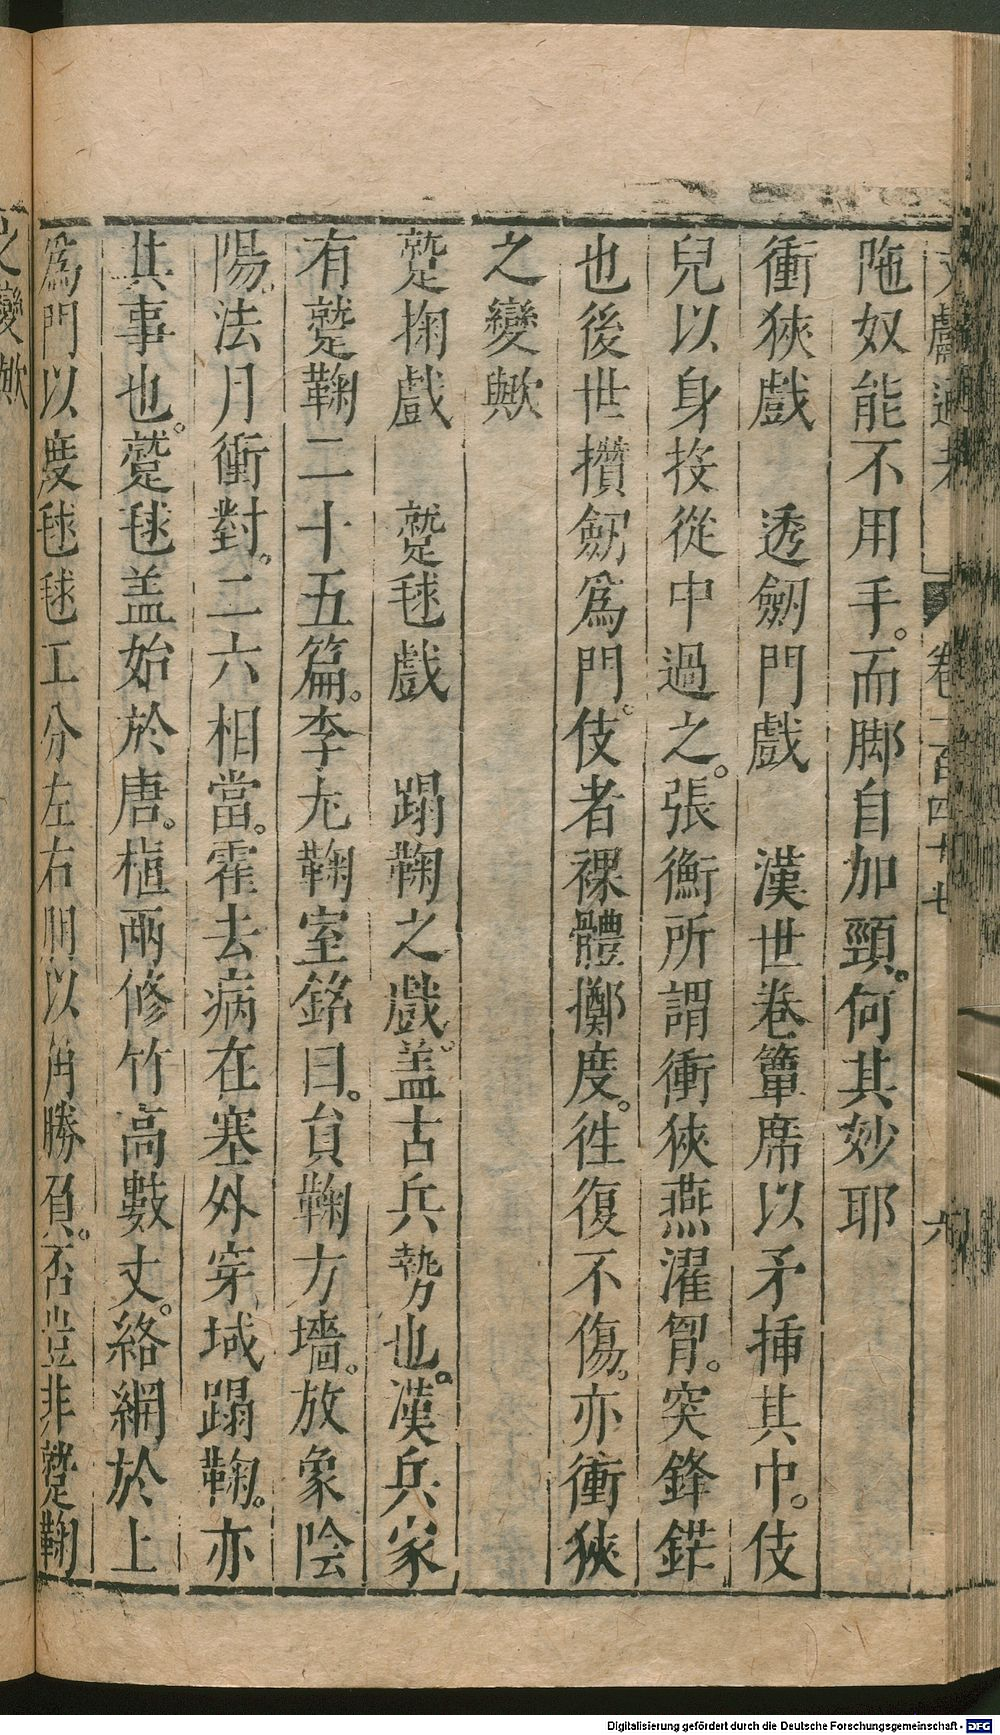 文獻通考 卷一百四十七 六
陁奴能不用手。而脚自加頸。何其妙耶
衝狹戲 透劒門戲 漢世卷簟席以矛揷其中。伎
兒以身投從中過之。張衡所謂衝狹燕濯胷。突鋒鋩
也後世攢劒爲門。伎者裸體擲度。徃復不傷。亦衝狹
之變歟
蹵掬戲 蹵毬戲 蹋鞠之戲。盖古兵勢也。漢兵家
有蹵鞠二十五篇。李尢鞠室銘曰。貟鞠方墻。放象陰
陽。法月衝對。二六相當。霍去病在塞外穿域蹋鞠。亦
其事也。蹵毬盖始於唐。植兩修竹高數丈。絡網於上
爲門以度毬毬工分左右朋以角勝負。否豈非蹵鞠
之變歟
Digitalisierung gefördert durch die Deutsche Forschungsgemeinschaft - DFG